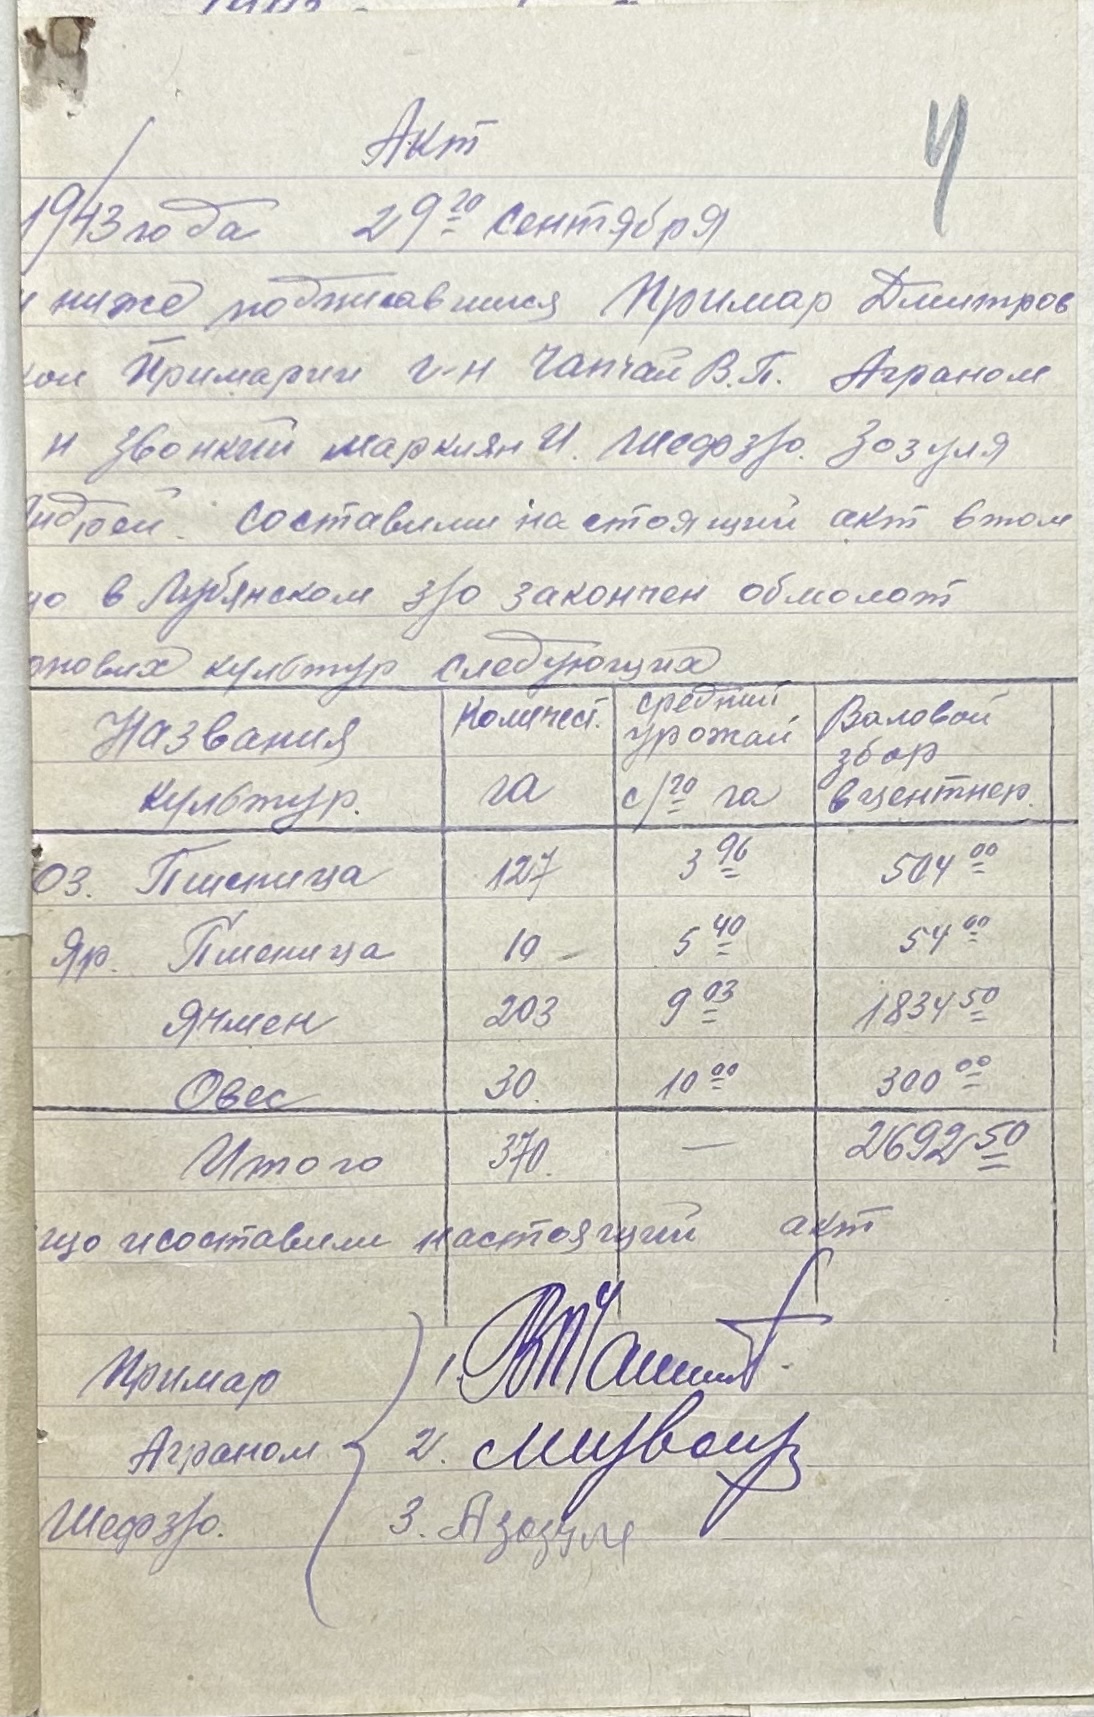 Акт
4
1943 года 29го сентября
и ниже подписавшися Примар Дмитров
кой Примарии г-н Чапчай В.П. Аграном
н Звонкий Маркиян И. Шеф з/о. Зозуля
Андрей. составили настоящий акт втом
що в Лубянском з/о закончен обмолот
рнових культур следующих
Названия культур. | Количест. га | средний урожай с/го га | Валовой збор вцентнер.
Оз. Пшеница | 127 | 3 96 | 504 00
Яр. Пшеница | 10 | 5 40 | 54 00
Ячмен | 203 | 9 03 | 1834 50
Овес | 30. | 10 00 | 300 00
Итого | 370. | — | 2692 50
що исоставили настоящий акт
Примар 1.
Аграном 2.
Шеф з/о. 3. АЗозуля